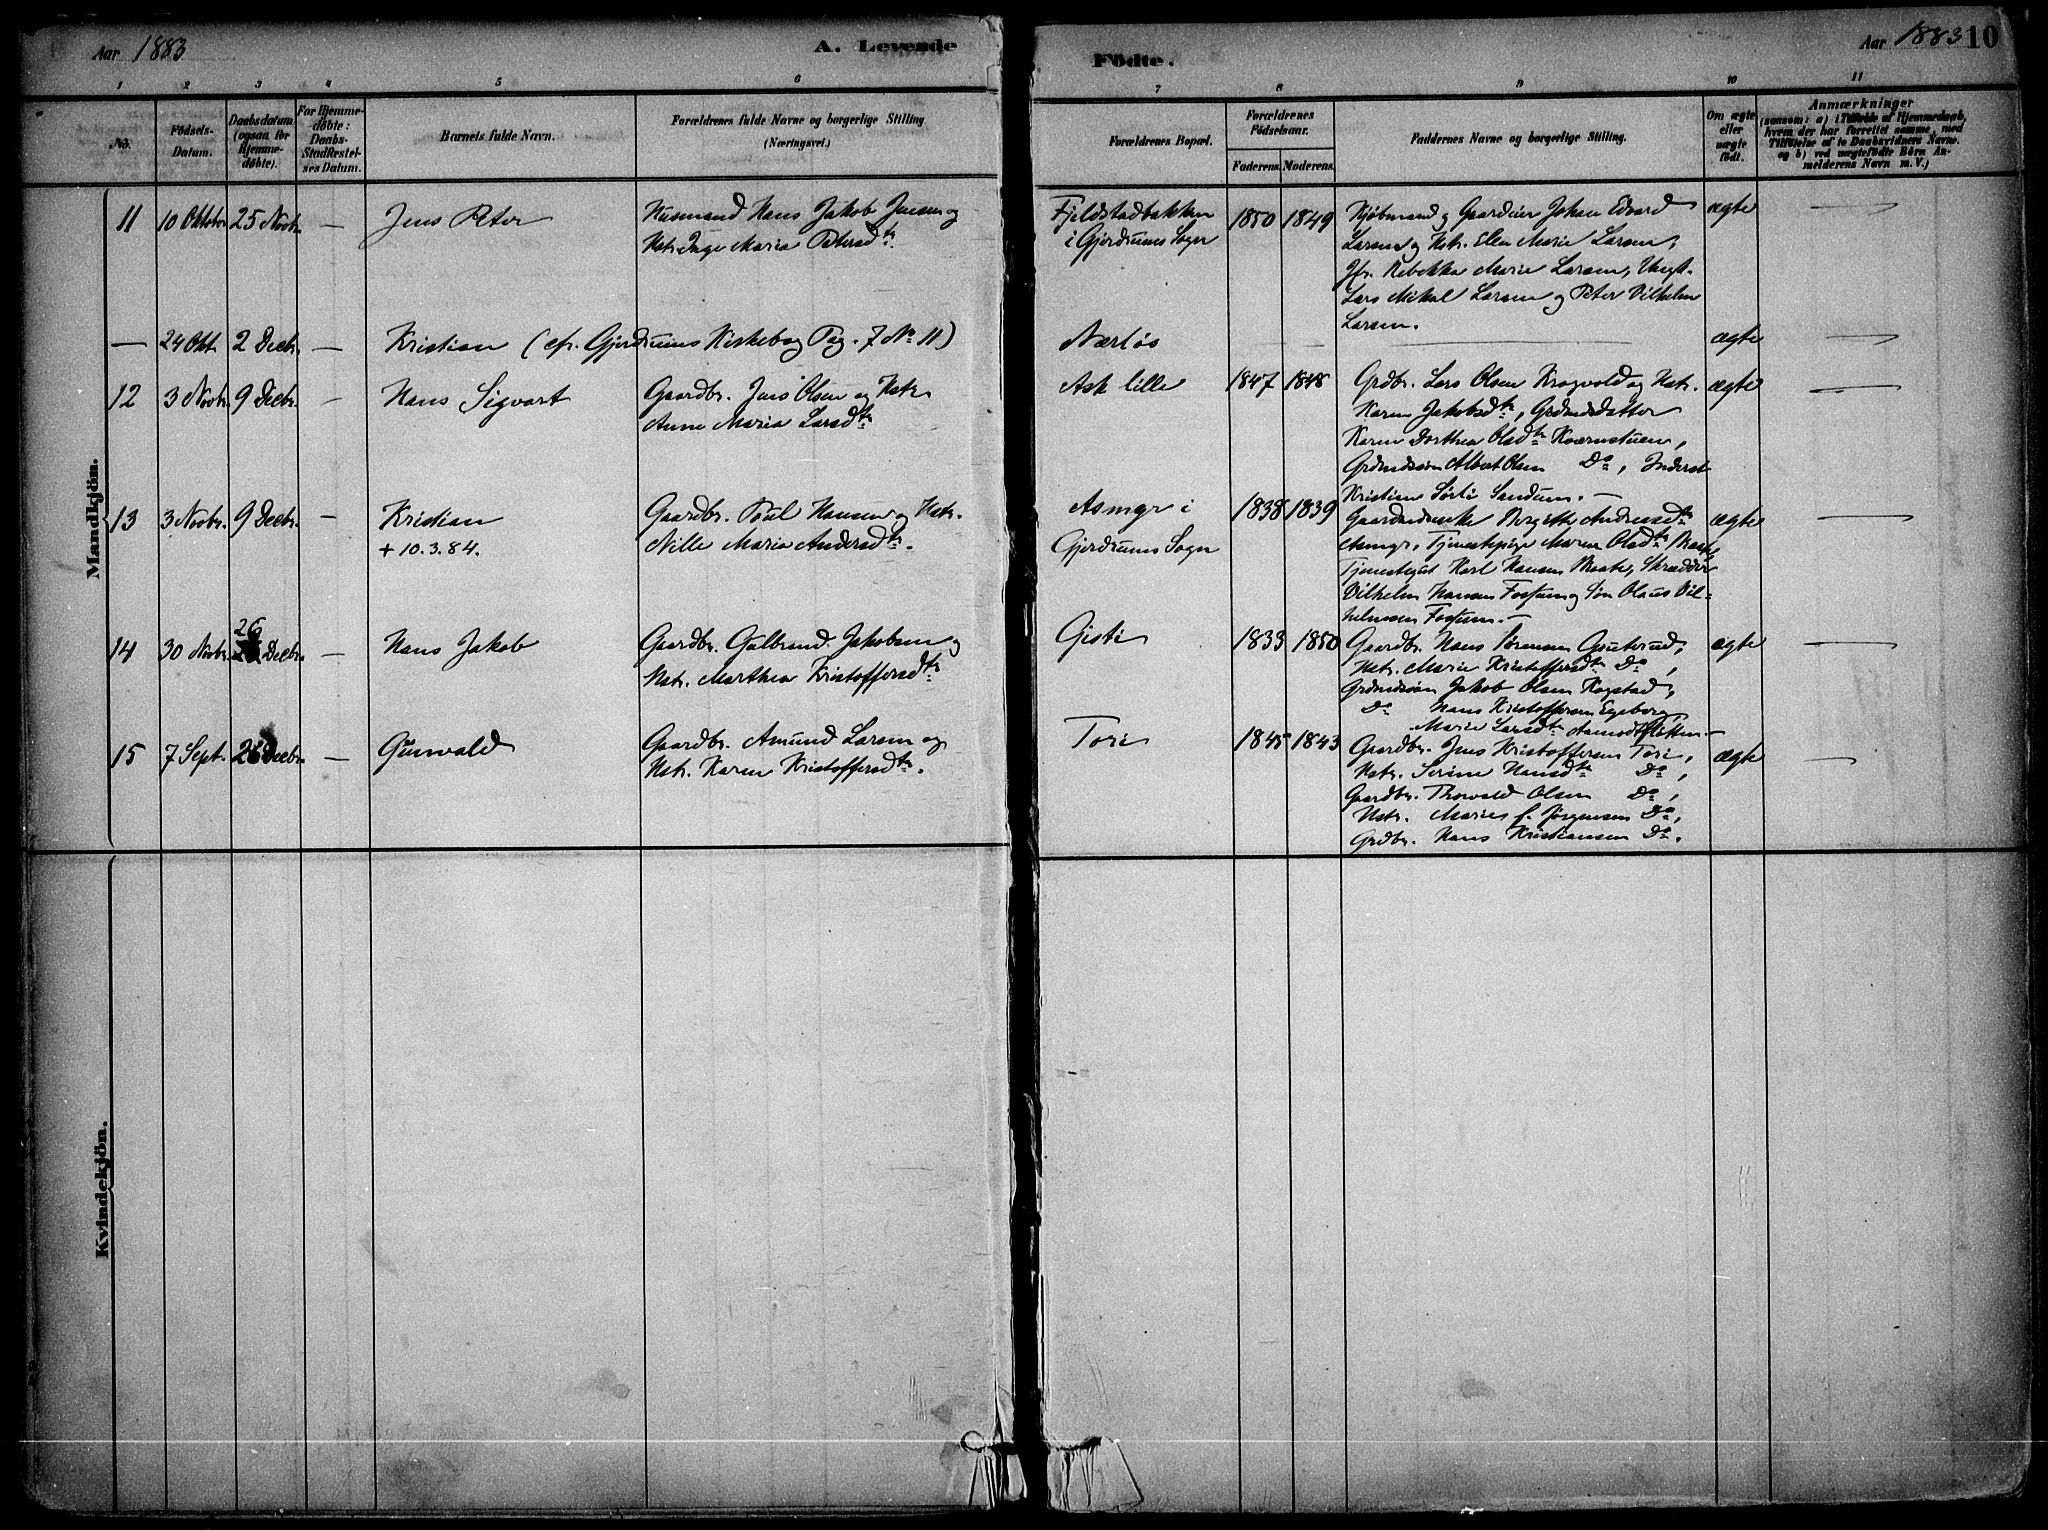 Aar 1883
A. Levende
Födte.
Aar 1883 10
1 2 3 4 5 6 7 8 9 10 11
No.
Födsels-
Datum.
Daabsdatum
(ogsaa for
Hjemme-
døbte).
For Hjemme-
døbte:
Daabs-
Stadfæstel-
ses Datum.
Barnets fulde Navn.
Forældrenes fulde Navne og borgerlige Stilling
(Næringsvei.)
Forældrenes Bopæl.
Forældrenes
Fødselsaar.
Faderens. Moderens.
Faddernes Navne og borgerlige Stilling.
Om ægte
eller
uægte
født.
Anmærkninger
(saasom: a) i Tilfælde af Hjemmedaab,
hvem der har forrettet samme, med
Tilføielse af to Daabsvidners Navne.
og b) ved uægtefødte Børn An-
melderens Navn m. V.)
Mandkjön.
11 10 Oktober 25 Novbr. — Jens Peter
Husmand Hans Jakob Jensen og
Hstr. Inge Maria Petersdtr.
Fjeldstadbakken
i Gjerdrums Sogn
1850 1849
Kjøbmand og Gaardeier Johan Edvard
Larsen og Hstr. Elen Marie Larsen,
Jfr. Rebekka Marie Larsen, Ungk.
Lars Nikal Larsen og Peter Vilhelm
Larsen.
ægte —
— 24 Okt. 2 Decbr. — Kristian (cfr. Gjerdrums Kirkebog Pag. 7 No 11)
Nærløs
ægte —
12 3 Novbr. 9 Decbr. — Hans Sigvart
Gaardbr. Jens Olsen og Hstr.
Anne Maria Larsdtr.
Ask lille
1847 1848
Grdbr. Lars Olsen Krogvold og Hstr.
Karen Jakobsdtr, Grdmdsdatter
Karen Dorthea Olsdtr Kværnstuen,
Grdmdssøn Albert Olsen Do, Inderst
Kristian Sørli Sandum. —
ægte —
13 3 Novbr. 9 Decbr. — Kristian
+ 10.3.84.
Gaardbr. Poul Hansen og Hstr.
Nille Maria Andersdtr.
Asmyr i
Gjerdrums Sogn
1838 1839
Gaardmdenke Birgitte Andreasdtr
Asmyr, Tjenestepige Maren Olsdtr
Tjenestegut Karl Hansen Skrædder
Vilhelm Hansen Fossum og Søn Olaus Vil-
helmsen Fossum. —
ægte —
14 30 Novbr. 26 Decbr. — Hans Jakob
Gaardbr. Gulbrand Jakobsen og
Hstr. Marthea Kristoffersdtr.
Gisti
1833 1850
Gaardbr. Hans Sørensen Gouterud,
Hstr. Marie Kristoffersdtr Do,
Grdmdssøn Jakob Olsen Kogstad,
Do Hans Kristoffersen Egeberg,
Marie Larsdtr Aamodtsletten —
ægte —
15 7 Sept. 26 Decbr. — Gunvald
Gaardbr. Amund Larsen og
Hstr. Karen Kristoffersdtr.
Tori
1845 1843
Gaardbr. Jens Kristoffersen Tori,
Hstr. Serine Hansdtr Do,
Gaardbr. Thorvald Olsen Do,
Hstr. Maries f. Jørgensen Do,
Grdbr. Hans Kristiansen Do.
ægte —
Kvindekjön.